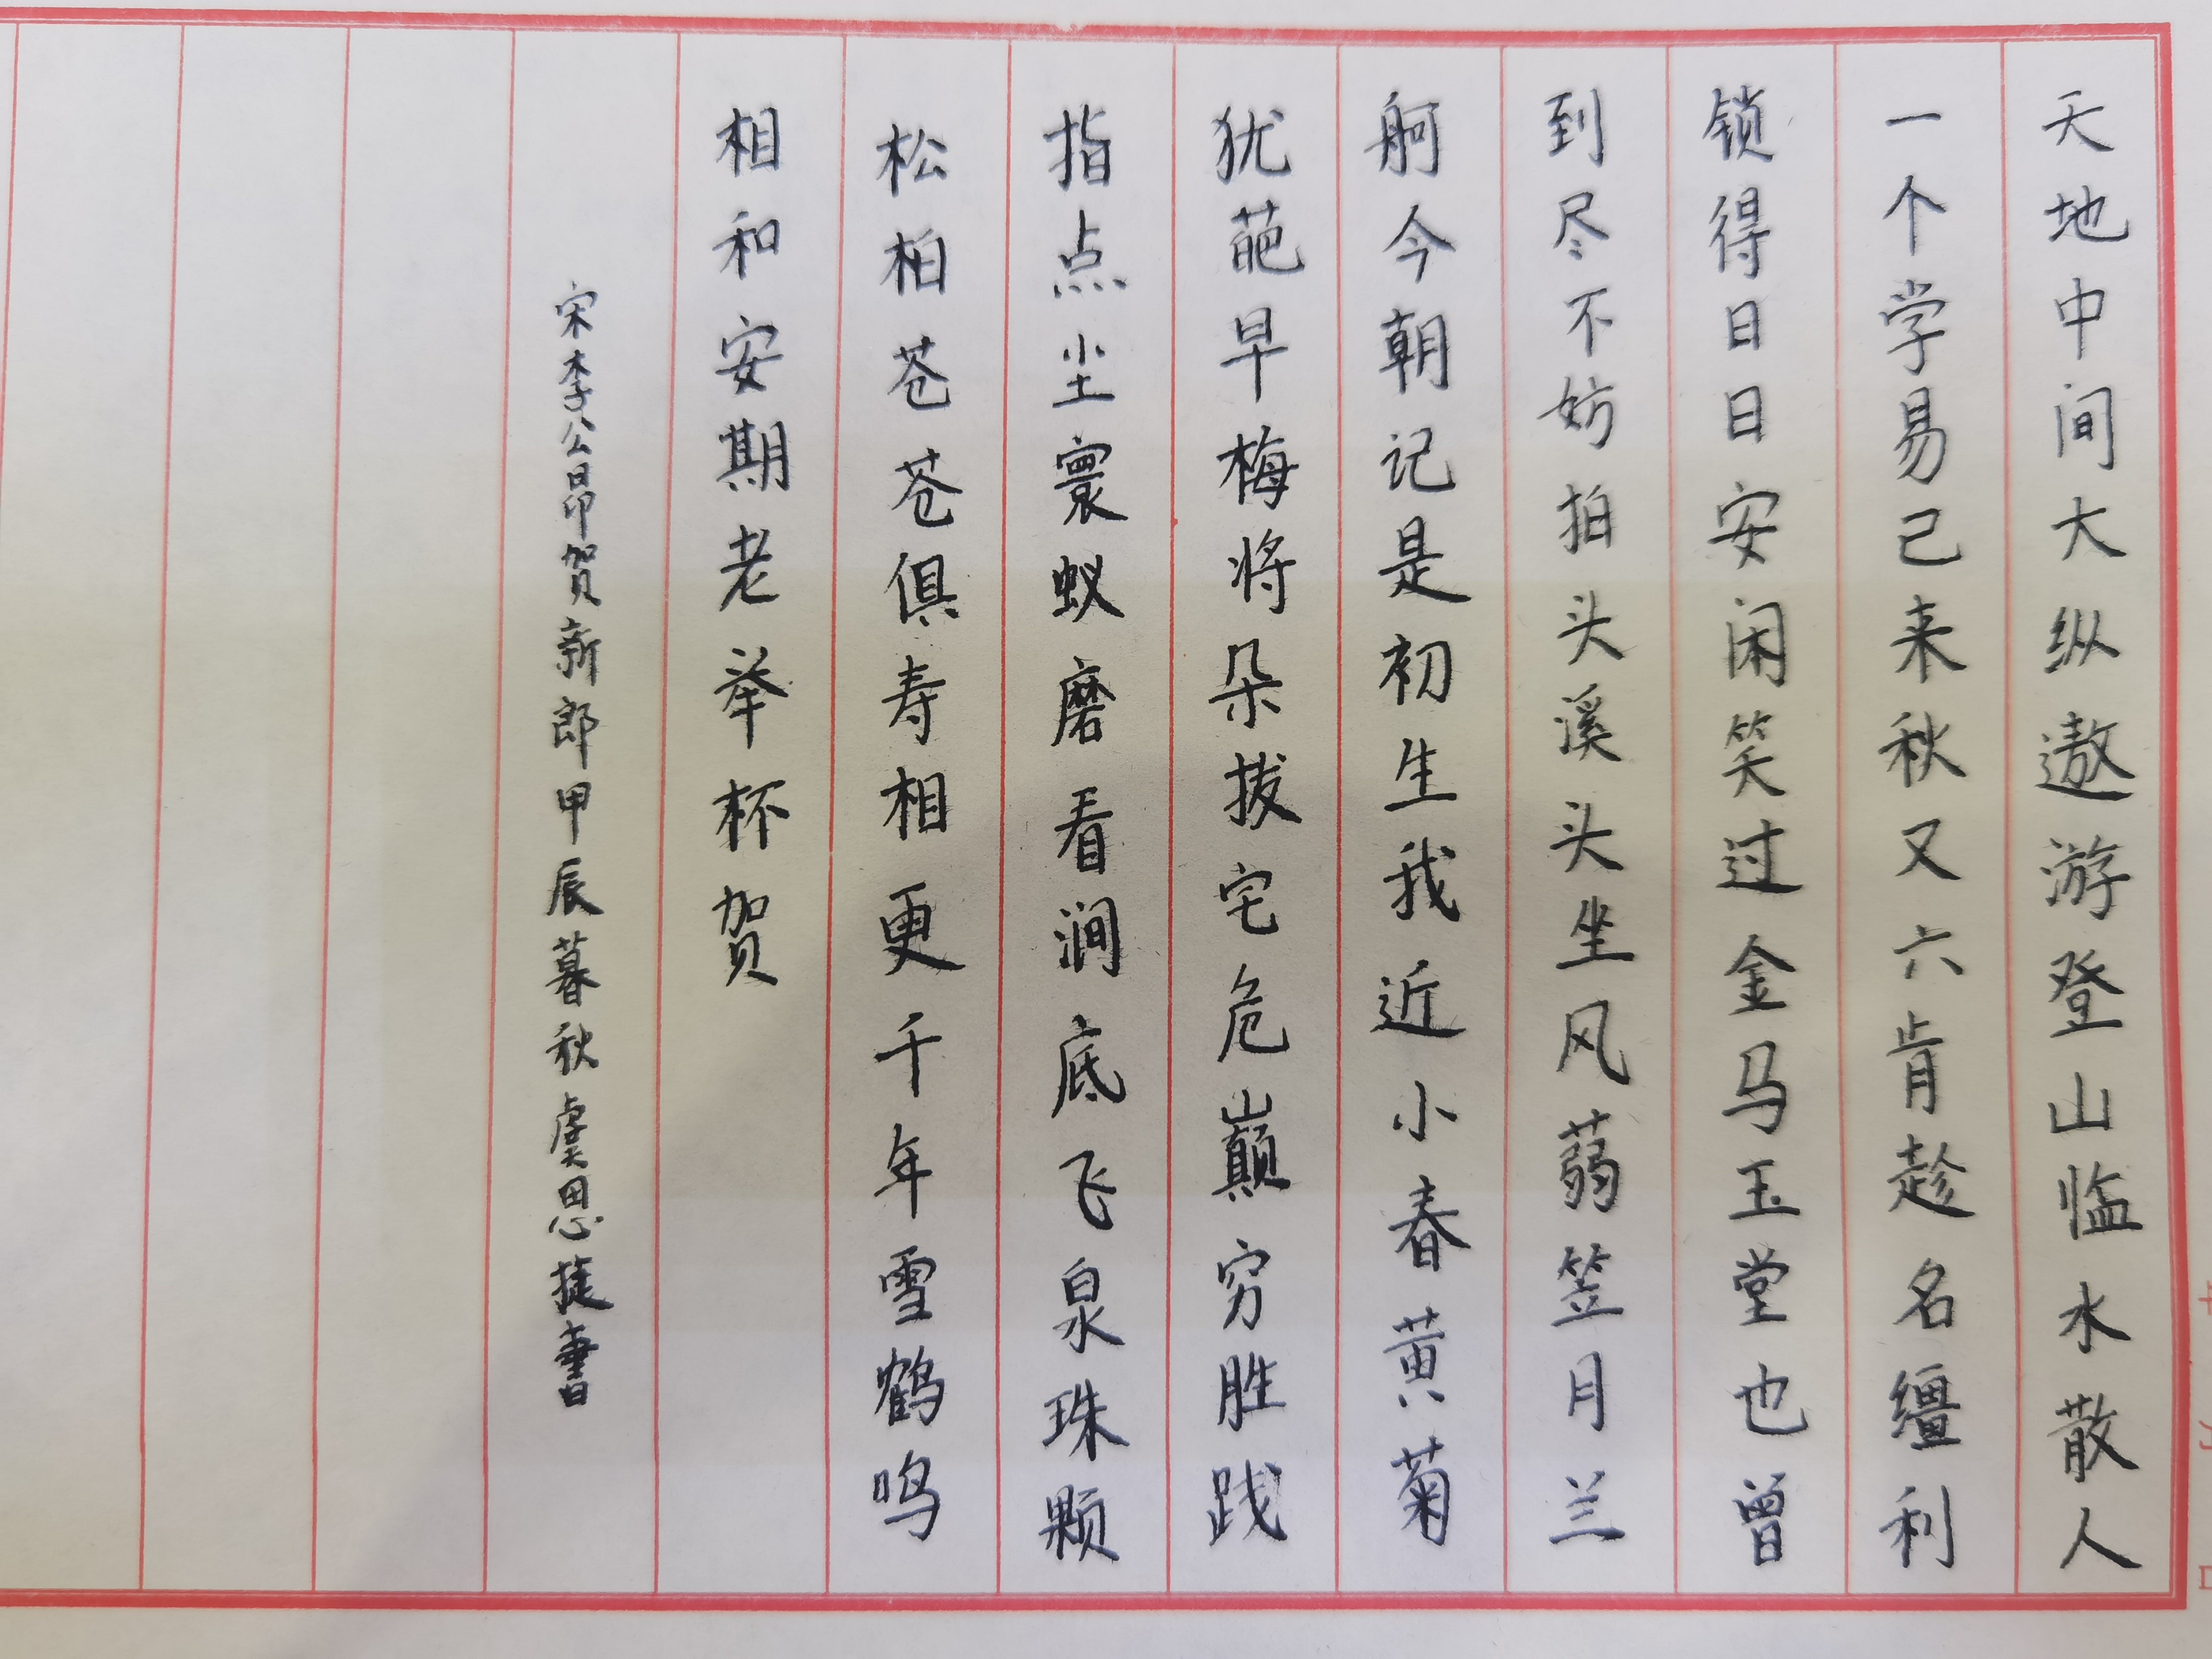 天地中间大纵遨游登山临水散人
一个学易已来秋又六肯趁名缰利
锁得日日安闲笑过金马玉堂也曾
到尽不妨拍头溪头坐风蒻笠月兰
舸今朝记是初生我近小春黄菊
犹葩早梅将朵拔宅危巅穷胜践
指点尘寰蚁磨看涧底飞泉珠颗
松柏苍苍俱寿相更千年雪鹤鸣
相和安期老举杯贺
宋李公昴贺新郎甲辰暮秋虞思捷書